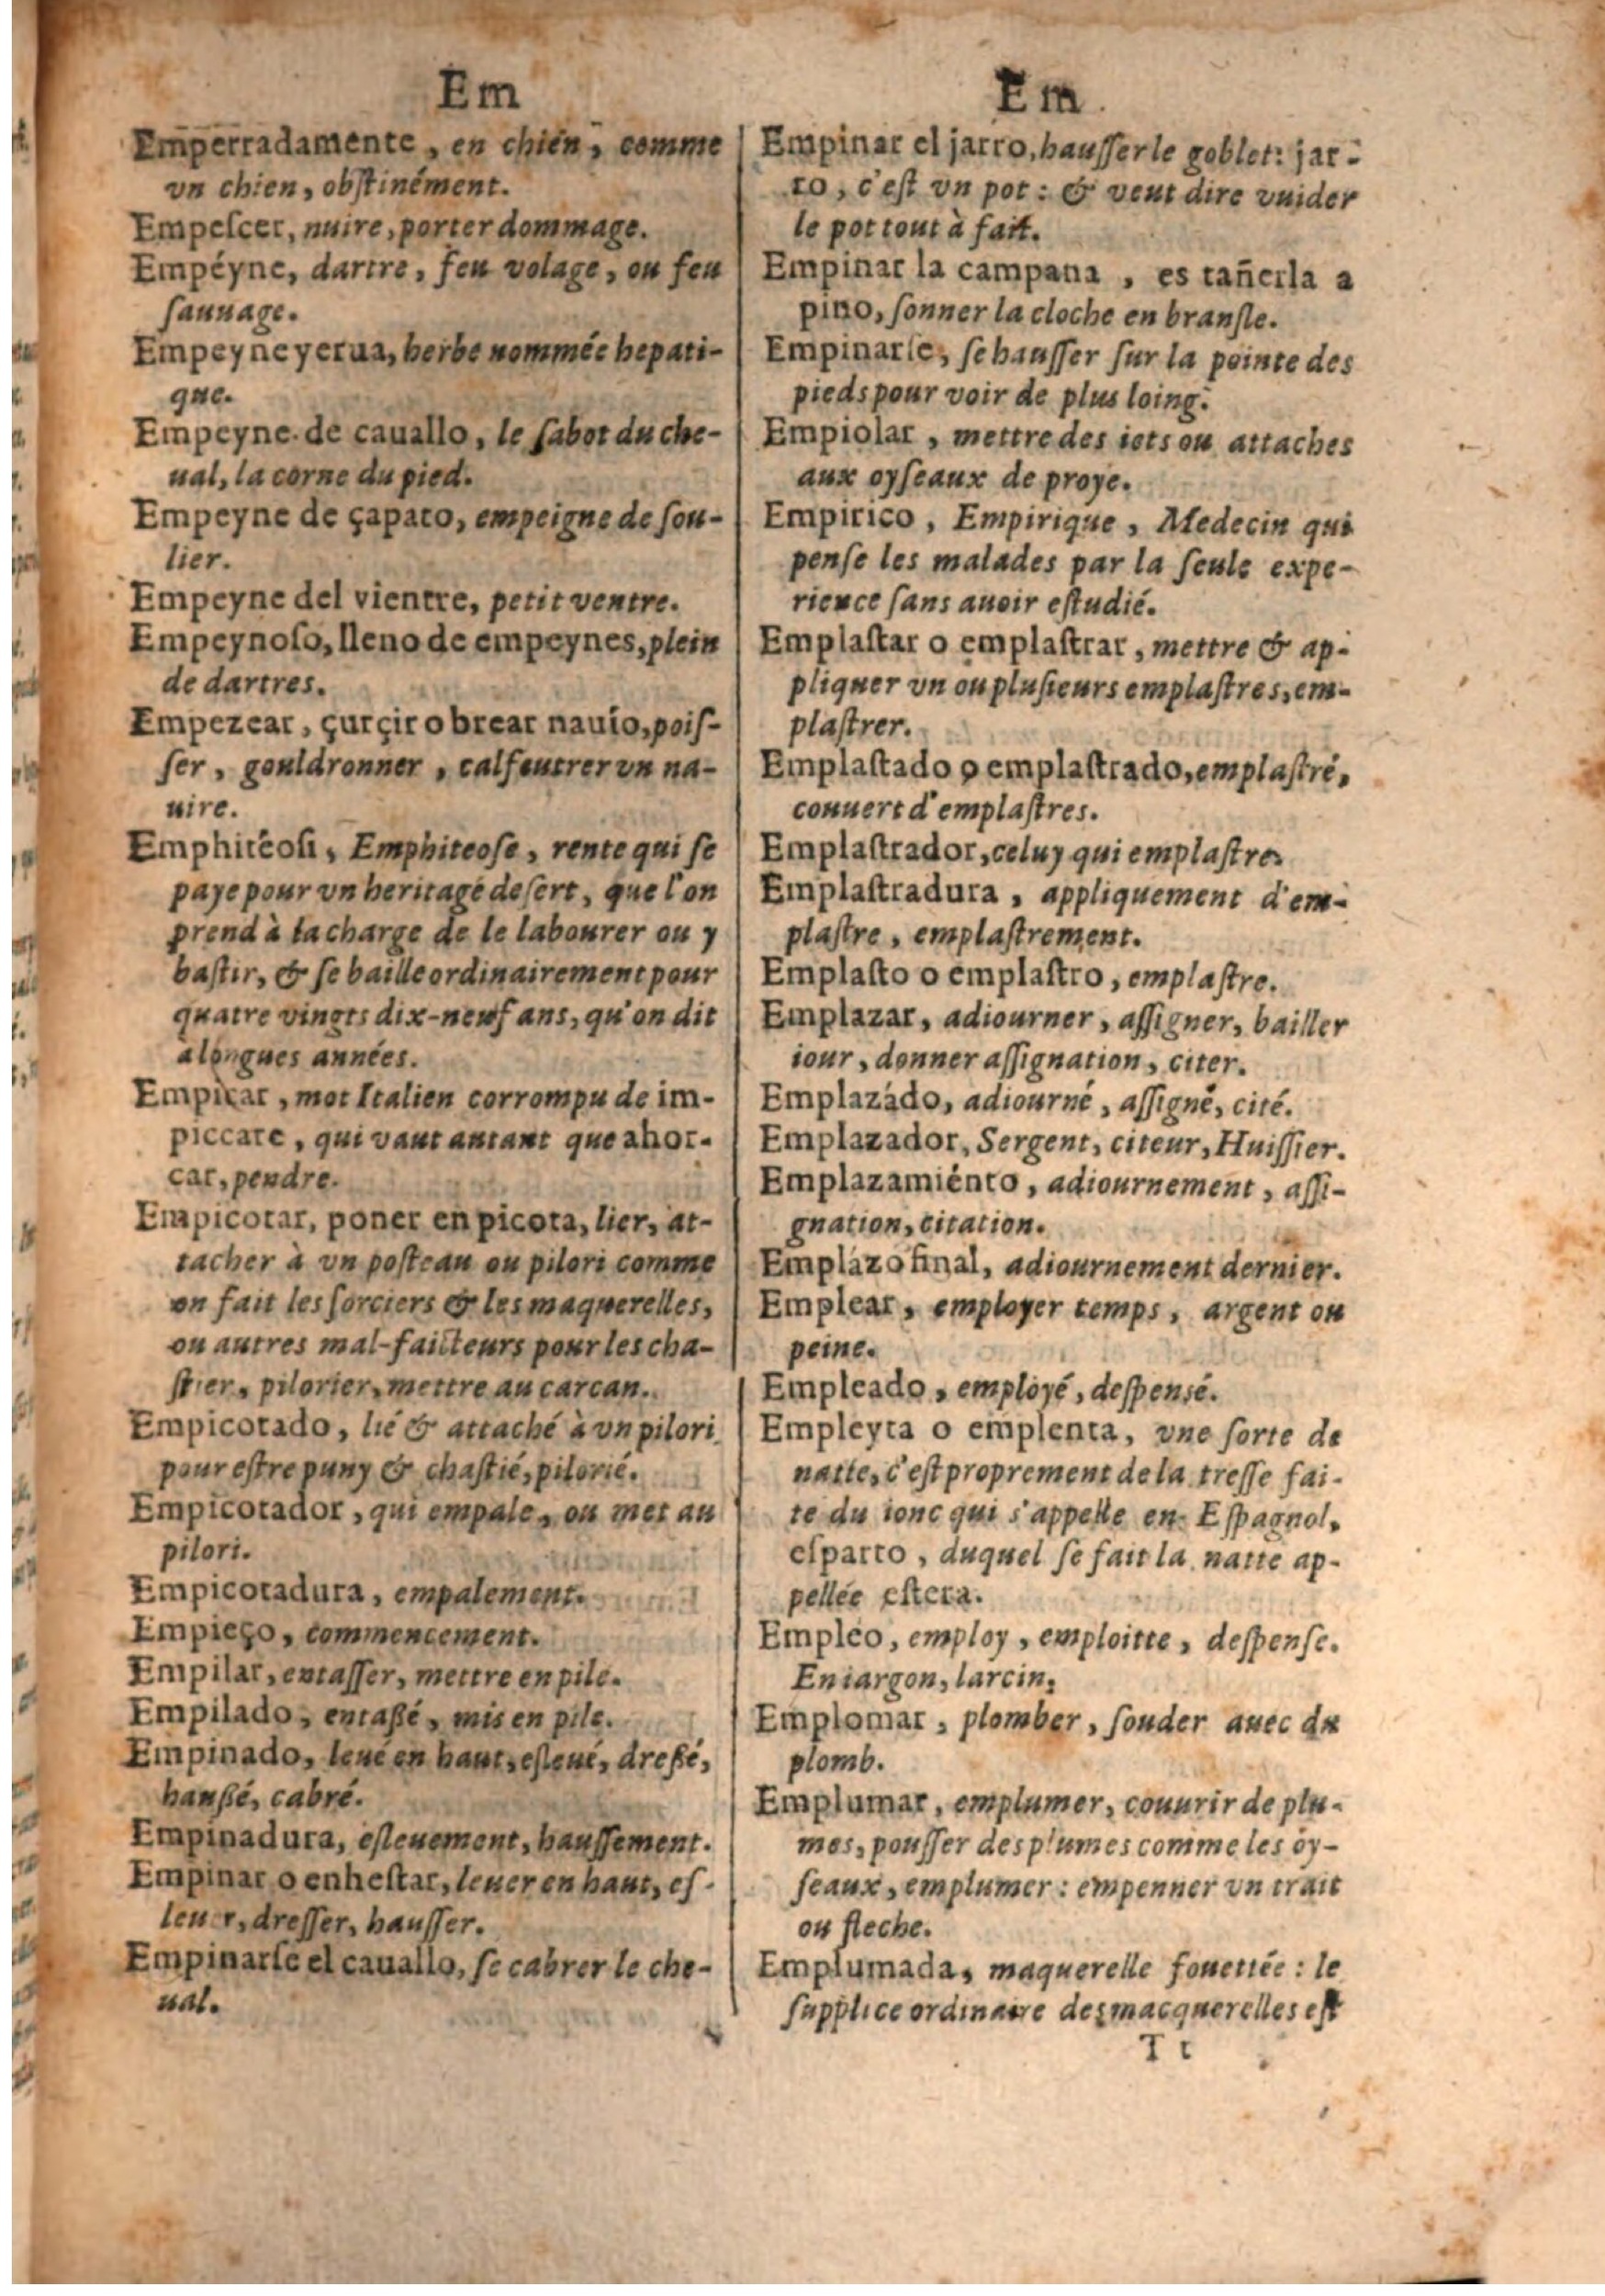 Em
Emperradamente, en chien, comme
vn chien, obstinément.
Empeſcer, nuire, porter dommage.
Empéyne, dartre, feu volage, ou feu
ſauuage.
Empeyne yerua, herbe nommée hepati-
que.
Empeyne de cauallo, le ſabot du che-
ual, la corne du pied.
Empeyne de çapato, empeigne de ſou-
lier.
Empeyne del vientre, petit ventre.
Empeynoſo, lleno de empeynes, plein
de dartres.
Empezear, çurçir o brear nauío, poiſ-
ſer, gouldronner, calfeutrer vn na-
uire.
Emphitéoſi, Emphiteoſe, rente qui ſe
paye pour vn heritage deſert, que l'on
prend à la charge de le labourer ou y
baſtir, & ſe baille ordinairement pour
quatre vingts dix-neuf ans, qu'on dit
à longues années.
Empicar, mot Italien corrompu de im-
piccare, qui vaut autant que ahor-
car, pendre.
Empicotar, poner en picota, lier, at-
tacher à vn poſteau ou pilori comme
on fait les ſorciers & les maquerelles,
ou autres mal-faicteurs pour les cha-
ſtier, pilorier, mettre au carcan.
Empicotado, lié & attaché à vn pilori
pour eſtre puny & chaſtié, pilorié.
Empicotador, qui empale, ou met au
pilori.
Empicotadura, empalement.
Empieço, commencement.
Empilar, entaſſer, mettre en pile.
Empilado, entaßé, mis en pile.
Empinado, leué en haut, eſleué, dreßé,
haußé, cabré.
Empinadura, eſleuement, hauſſement.
Empinar o enheſtar, leuer en haut, eſ-
leuer, dreſſer, hauſſer.
Empinarſe el cauallo, ſe cabrer le che-
ual.
Em
Empinar el jarro, hauſſer le goblet: jar-
ro, c'eſt vn pot: & veut dire vuider
le pot tout à fait.
Empinar la campana, es tañerla a
pino, ſonner la cloche en branſle.
Empinarſe, ſe hauſſer ſur la pointe des
pieds pour voir de plus loing.
Empiolar, mettre des iets ou attaches
aux oyſeaux de proye.
Empirico, Empirique, Medecin qui
penſe les malades par la ſeule expe-
rience ſans auoir eſtudié.
Emplaſtar o emplaſtrar, mettre & ap-
pliquer vn ou pluſieurs emplaſtres, em-
plaſtrer.
Emplaſtado o emplaſtrado, emplaſtré,
couuert d'emplaſtres.
Emplaſtrador, celuy qui emplaſtre.
Emplaſtradura, appliquement d'em-
plaſtre, emplaſtrement.
Emplaſto o emplaſtro, emplaſtre.
Emplazar, adiourner, aſſigner, bailler
iour, donner aſſignation, citer.
Emplazádo, adiourné, aſſigné, cité.
Emplazador, Sergent, citeur, Huiſſier.
Emplazamiénto, adiournement, aſſi-
gnation, citation.
Emplázo final, adiournement dernier.
Emplear, employer temps, argent ou
peine.
Empleado, employé, deſpensé.
Empleyta o emplenta, vne ſorte de
natte, c'eſt proprement de la treſſe fai-
te du ionc qui s'appelle en Eſpagnol,
eſparto, duquel ſe fait la natte ap-
pellée eſtera.
Empléo, employ, emploitte, deſpenſe.
En iargon, larcin.
Emplomar, plomber, ſouder auec du
plomb.
Emplumar, emplumer, couurir de plu-
mes, pouſſer des plumes comme les oy-
ſeaux, emplumer: empenner vn trait
ou fleche.
Emplumada, maquerelle fouettée: le
ſupplice ordinaire des macquerelles eſt
T t